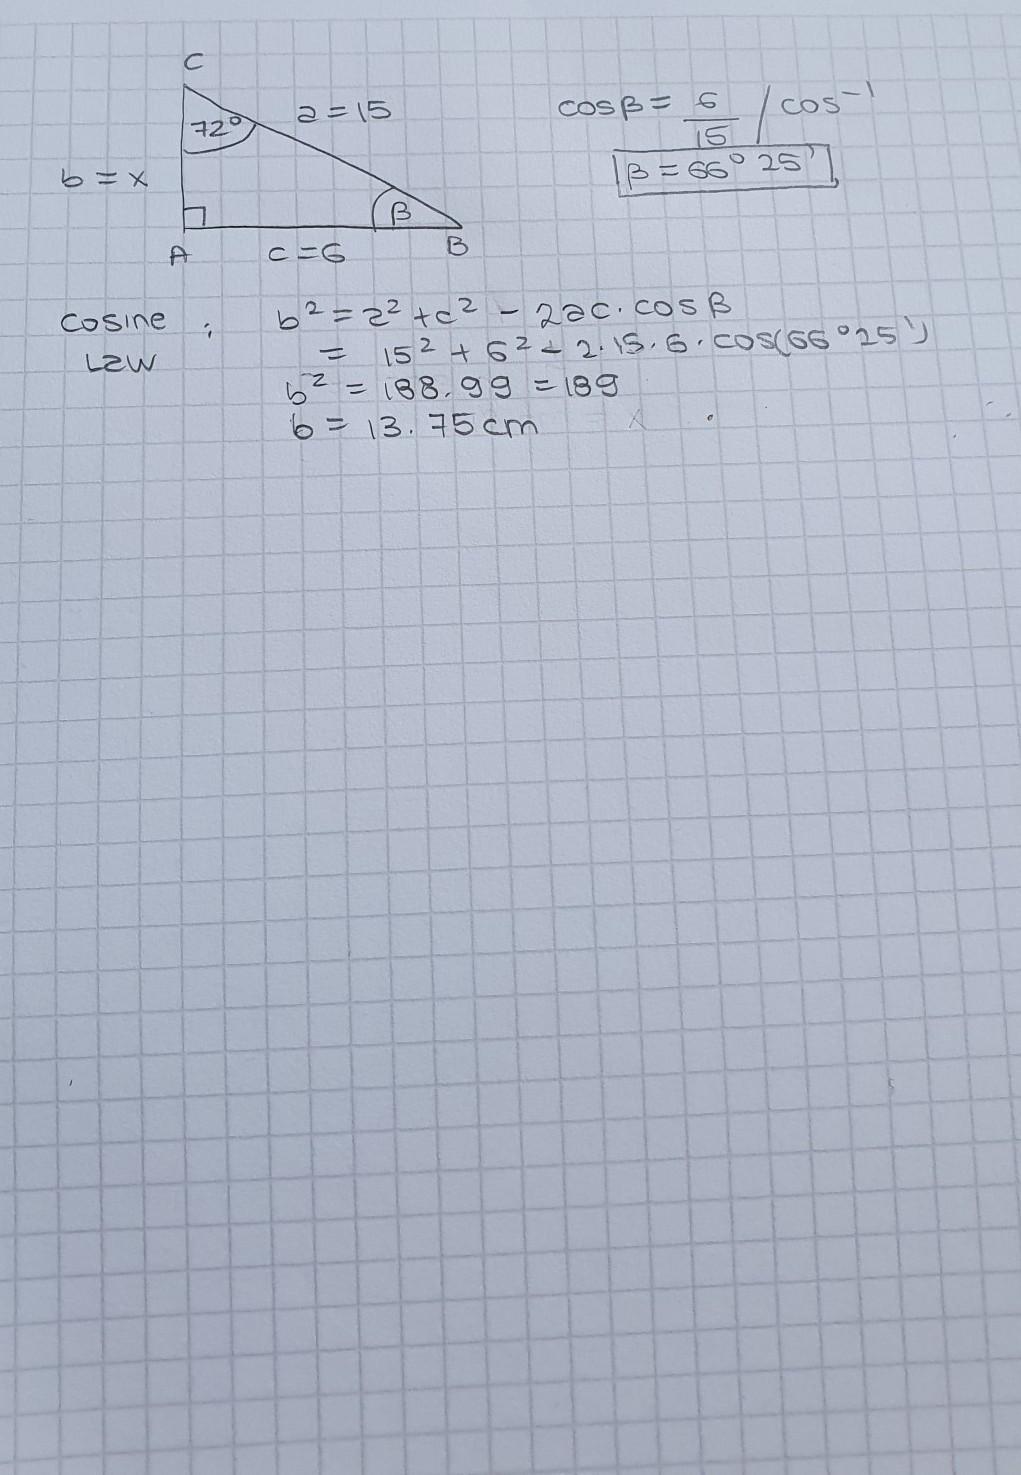 C
72°
a = 15
b = x
β
A
c = 6
B
cos β = 6/15 / cos⁻¹
β = 66° 25'
cosine Law : b² = a² + c² - 2ac. cos β
= 15² + 6² - 2.15.6. cos(66° 25')
b² = 188.99 = 189
b = 13.75 cm